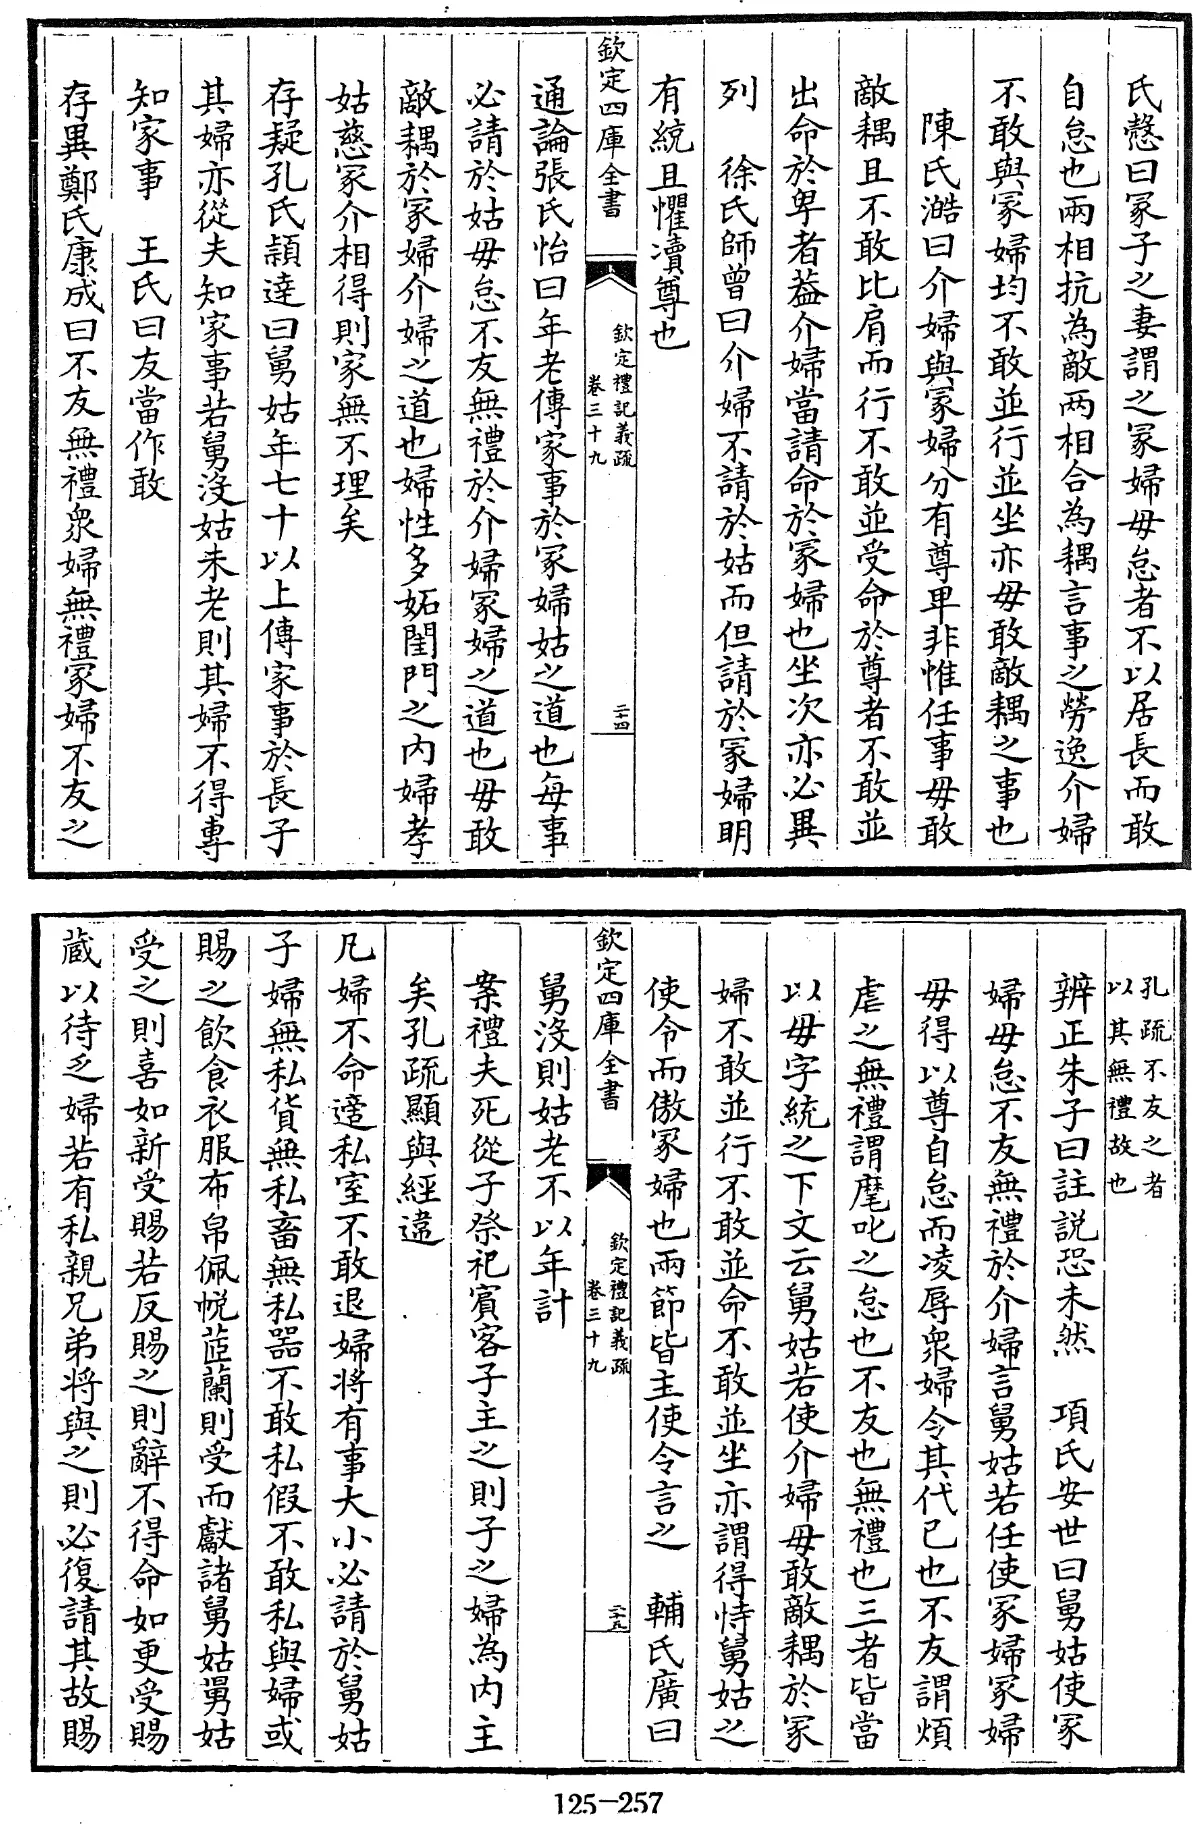 氏慤曰冢子之妻謂之冢婦毋怠者不以居長而敢
自怠也兩相抗為敵兩相合為耦言事之勞逸介婦
不敢與冢婦均不敢並行並坐亦毋敢敵耦之事也
陳氏澔曰介婦與冢婦分有尊卑非惟任事毋敢
敵耦且不敢比肩而行不敢並受命於尊者不敢並
出命於卑者蓋介婦當請命於冢婦也坐次亦必異
列　徐氏師曾曰介婦不請於姑而但請於冢婦明
有統且懼瀆尊也
欽定四庫全書
欽定禮記義疏
卷三十九
二十四
通論張氏怡曰年老傳家事於冢婦姑之道也每事
必請於姑毋怠不友無禮於介婦冢婦之道也毋敢
敵耦於冢婦介婦之道也婦性多妬閨門之内婦孝
姑慈冢介相得則家無不理矣
存疑孔氏頴達曰舅姑年七十以上傳家事於長子
其婦亦從夫知家事若舅沒姑未老則其婦不得專
知家事　王氏曰友當作敢
存異鄭氏康成曰不友無禮衆婦無禮冢婦不友之
孔疏不友之者
以其無禮故也
辨正朱子曰註説恐未然　項氏安世曰舅姑使冢
婦毋怠不友無禮於介婦言舅姑若任使冢婦冢婦
毋得以尊自怠而凌辱衆婦令其代已也不友謂煩
虐之無禮謂麾叱之怠也不友也無禮也三者皆當
以毋字統之下文云舅姑若使介婦毋敢敵耦於冢
婦不敢並行不敢並命不敢並坐亦謂得恃舅姑之
使令而傲冢婦也兩節皆主使令言之　輔氏廣曰
欽定四庫全書
欽定禮記義疏
卷三十九
二十五
舅沒則姑老不以年計
案禮夫死從子祭祀賓客子主之則子之婦為内主
矣孔疏顯與經違
凡婦不命適私室不敢退婦將有事大小必請於舅姑
子婦無私貨無私畜無私器不敢私假不敢私與婦或
賜之飲食衣服布帛佩帨茝蘭則受而獻諸舅姑舅姑
受之則喜如新受賜若反賜之則辭不得命如更受賜
藏以待乏婦若有私親兄弟將與之則必復請其故賜
125-257